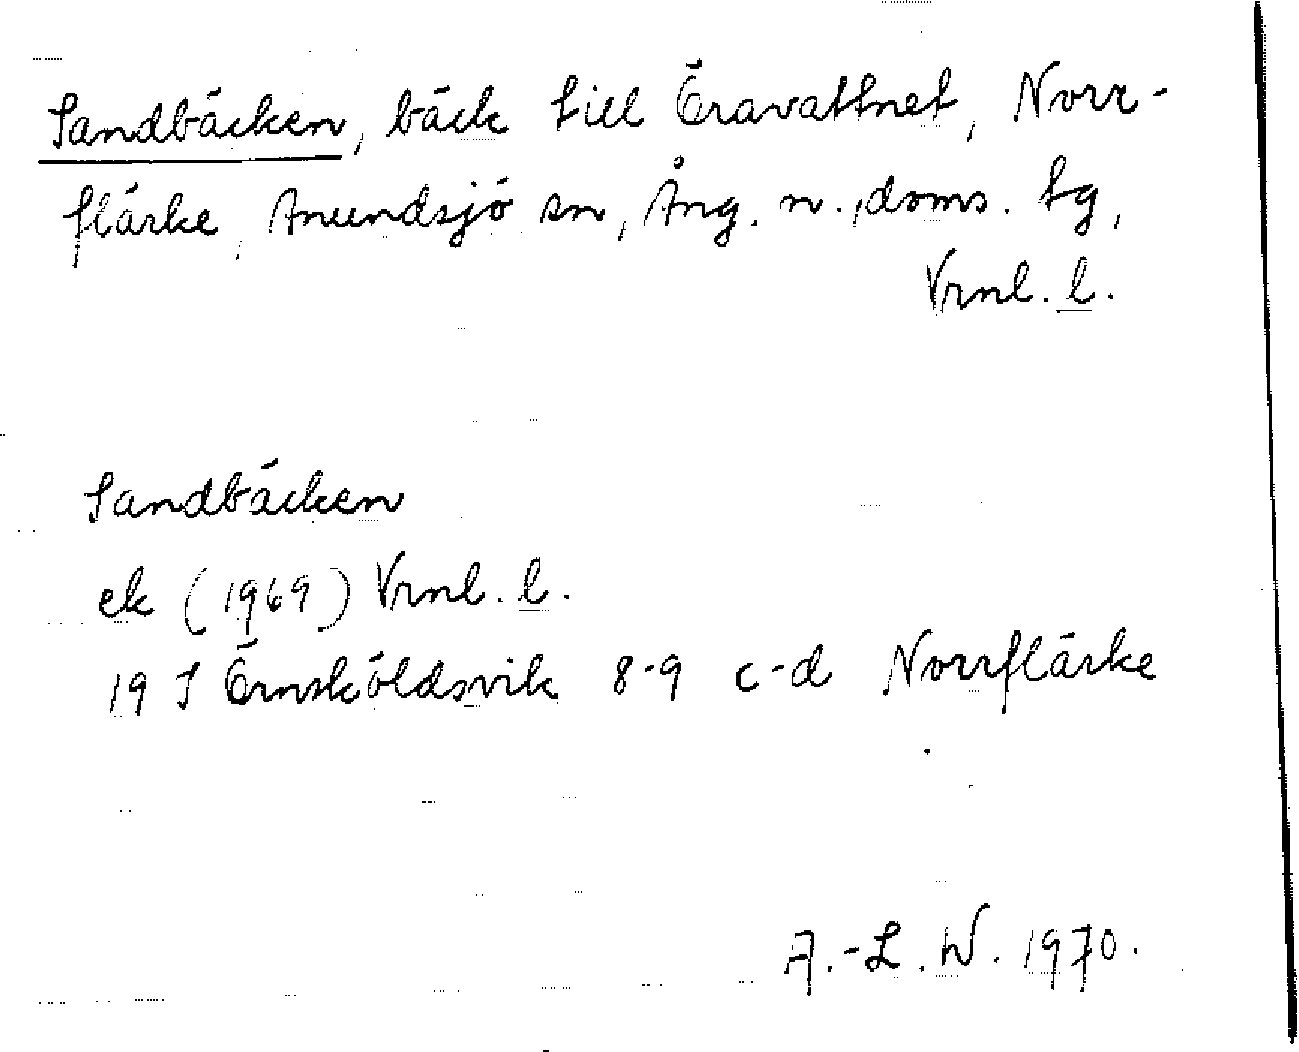 Sandbäcken, bäck till Öravattnet, Norr-
flärke, Anundsjö sn, Ång. n. doms. tg,
Vrnl. l.
Sandbäcken
ek (1969) Vrnl. l.
19 I Örnsköldsvik 8-9 c-d Norrflärke
A.-L. W. 1970.